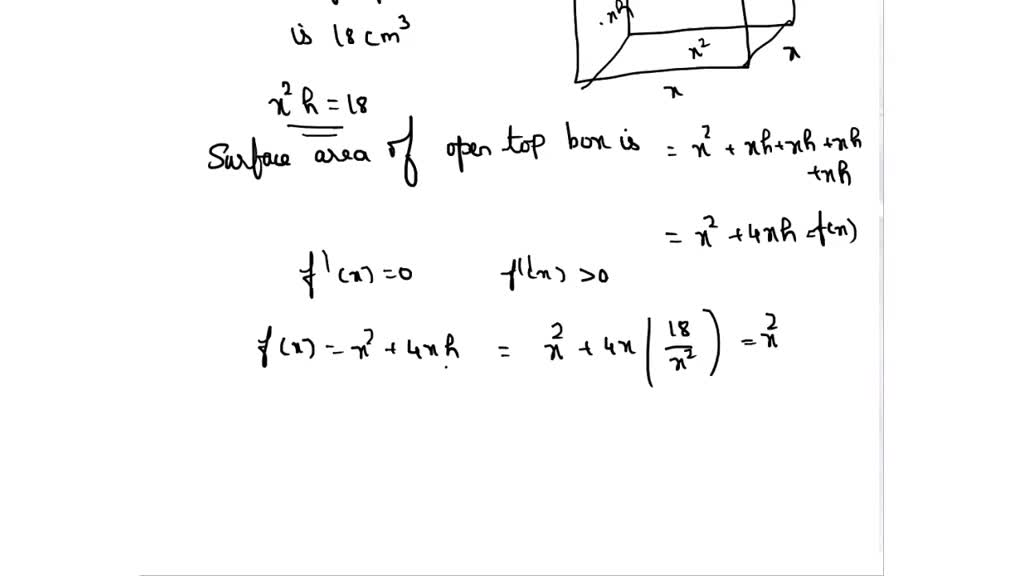 xh
is 18 cm³
x²
x
x
x²h = 18
Surface area of open top box is = x² + xh + xh + xh
+ xh
= x² + 4xh = f(x)
f'(x) = 0 f''(x) > 0
f(x) = x² + 4xh = x² + 4x (18/x²) = x²